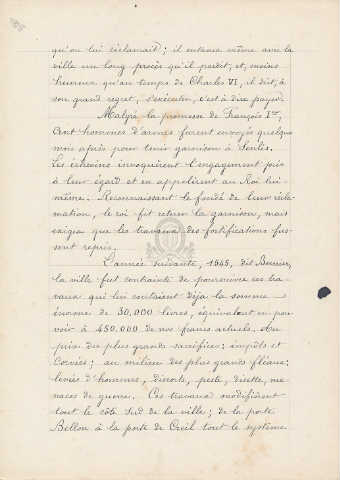 qu'on lui réclamait; il entama même avec la
ville un long procès qu'il perdit, et, moins
heureux qu'au temps de Charles VI, il dût, à
son grand regret, s'exécuter, c'est à dire payer.
Malgré la promesse de François Ier,
Cent hommes d'armes furent envoyés quelques
mois après pour tenir garnison à Senlis.
Les échevins invoquèrent l'engagement pris
à leur égard et en appelèrent au Roi lui-
même. Reconnaissant le fondé de leur récla-
mation, le roi fit retirer la garnison, mais
exigea que les travaux des fortifications fus-
sent repris.
L'année suivante, 1545, dit Bernier,
la ville fut contrainte de poursuivre ces tra-
vaux qui lui coûtaient déjà la somme
énorme de 30,000 livres, équivalant en pou-
voir à 450.000 de nos francs actuels. Au
prix des plus grands sacrifices; impôts et
Corvées; au milieu des plus grands fléaux;
levées d'hommes, disette, peste, disette, me-
naces de guerre. Ces travaux modifièrent
tout le côté Sud de la ville; de la porte
Bellon à la porte de Creil tout le système